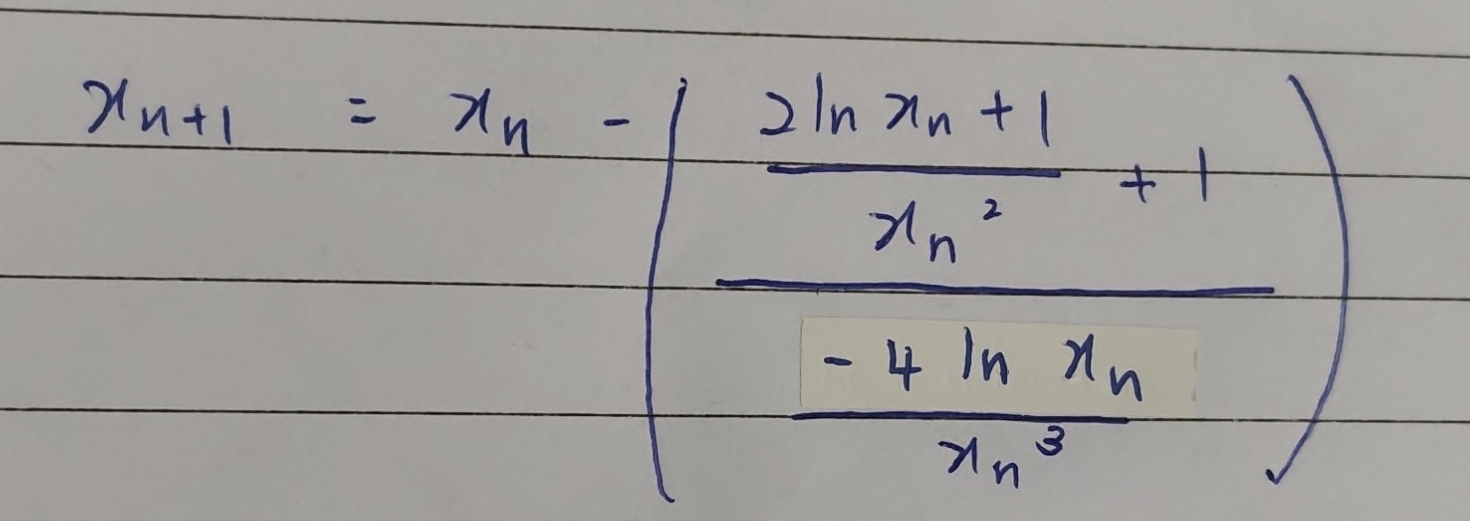 xₙ₊₁ = xₙ - ( ( (2 ln xₙ + 1) / xₙ² + 1 ) / ( -4 ln xₙ / xₙ³ ) )